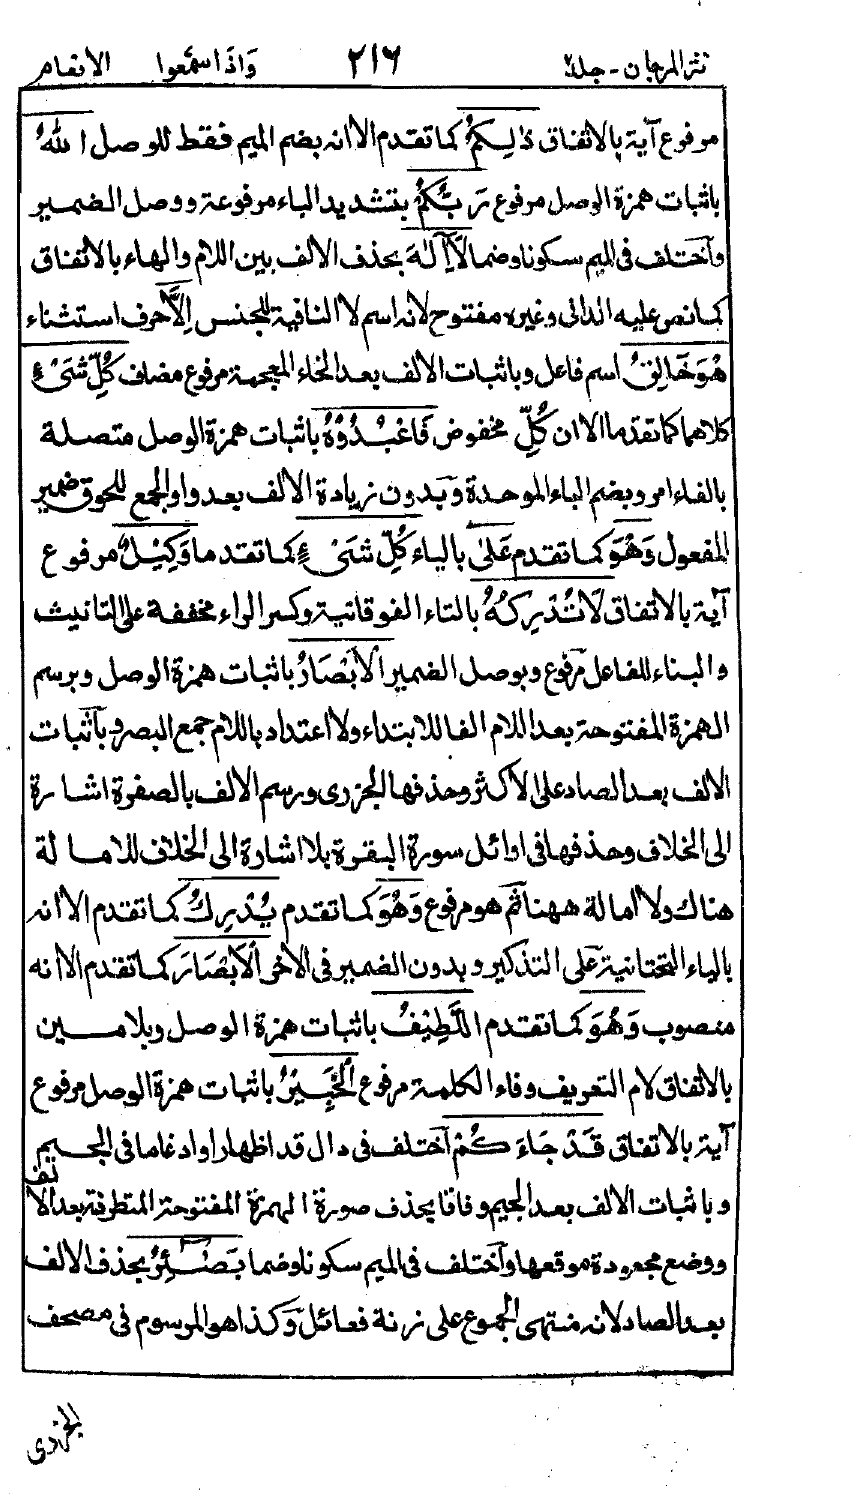 نثر المرجان - جلد۲ ۲۱۶ وَاذَا سمَعوا الانعام
مرفوع آية بالاتفاق ذٰلِكُمُ كما تقدم الا انه بضم الميم فقط للوصل اللهُ
باثبات همزة الوصل مرفوع رَبُّكُمْ بتشديد الباء مرفوعة ووصل الضمير
واختلف فى الميم سكونا وضما لَا اِلٰهَ بحذف الالف بين اللام والهاء بالاتفاق
كما نص عليه الدانى وغيره مفتوح لانه اسم لا النافية للجنس اِلَّا حرف استثناء
هُوَ خَالِقُ اسم فاعل وباثبات الالف بعد الخاء المعجمة مرفوع مضاف كُلِّ شَئْ ءٍ
كلاهما كما تقدما الا ان كُلِّ مخفوض فَاعْبُدُوْهُ باثبات همزة الوصل متصلة
بالفاء امر وبضم الباء الموحدة وبدون زيادة الالف بعد واو الجمع للحوق ضمير
المفعول وَهُوَ كما تقدم عَلىٰ بالياء كُلِّ شَئْ ءٍ كما تقدما وَكِيْلٌ مرفوع
آية بالاتفاق لَا تُدْرِكُهُ بالتاء الفوقانية وكسر الراء مخففة على التانيث
والبناء للفاعل مرفوع وبوصل الضمير الْاَبْصَارُ باثبات همزة الوصل وبرسم
الهمزة المفتوحة بعد اللام الفا للابتداء ولا اعتداد باللام جمع البصر وباثبات
الالف بعد الصاد على الاكثر وحذفها الجزرى ورسم الالف بالصفرة اشارة
الى الخلاف وحذفها فى اوائل سورة البقرة بلا اشارة الى الخلاف للامالة
هناك ولا امالة ههنا ثم هو مرفوع وَهُوَ كما تقدم يُدْرِكُ كما تقدم الا انه
بالياء التحتانية على التذكير وبدون الضمير فى الاخر الْاَبْصَارَ كما تقدم الا انه
منصوب وَهُوَ كما تقدم اللَّطِيْفُ باثبات همزة الوصل وبلامين
بالاتفاق لام التعريف وفاء الكلمة مرفوع الْخَبِيْرُ باثبات همزة الوصل مرفوع
آية بالاتفاق قَدْ جَاءَ كُمْ اختلف فى دال قد اظهارا وادغاما فى الجيم
وباثبات الالف بعد الجيم وفاقا بحذف صورة الهمزة المفتوحة المتطرفة بعد الالف
ووضع مجعودة موقعها واختلف فى الميم سكونا وضما بَصَٰئِرُ بحذف الالف
بعد الصاد لانه منتهى الجموع على زنة فعائل وكذا هو المرسوم فى مصحف
الجزرى